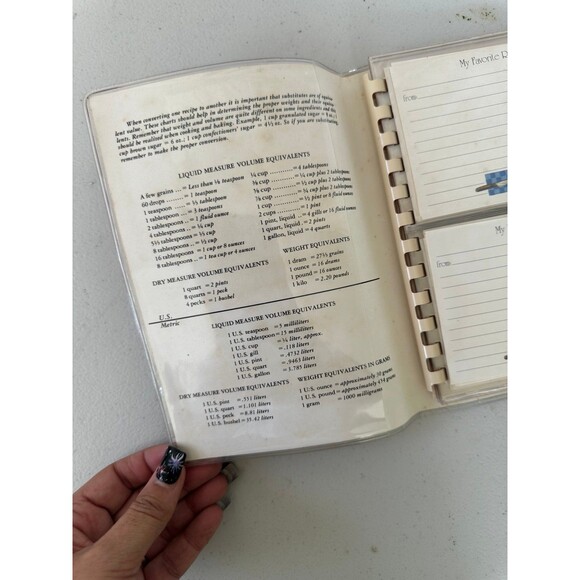 When converting one recipe to another it is important that substitutes are of equiva-
lent value. These charts should help in determining the proper weights and their equiva-
lents. Remember that weight and volume are quite different on some ingredients and this
should be realized when cooking and baking. Example, 1 cup granulated sugar = 8 oz.; 1
cup brown sugar = 6 oz.; 1 cup confectioners' sugar = 4½ oz. So if you are substituting
remember to make the proper conversion.
LIQUID MEASURE VOLUME EQUIVALENTS
A few grains ... = Less than ⅛ teaspoon
60 drops ........ = 1 teaspoon
1 teaspoon ..... = ⅓ tablespoon
1 tablespoon ... = 3 teaspoons
2 tablespoons .. = 1 fluid ounce
4 tablespoons .. = ¼ cup
5⅓ tablespoons = ⅓ cup
8 tablespoons .. = ½ cup
16 tablespoons = 1 cup or 8 ounces
8 tablespoons .. = 1 tea cup or 4 ounces
¼ cup ............ = 4 tablespoons
cup ............ = ¼ cup plus 2 tablespoons
cup ............ = ½ cup plus 2 tablespoons
cup ............ = ¾ cup plus 2 tablespoons
1 cup ............ = ½ pint or 8 fluid ounces
2 cups ........... = 1 pint
1 pint, liquid .. = 4 gills or 16 fluid ounces
1 quart, liquid .. = 2 pints
1 gallon, liquid = 4 quarts
DRY MEASURE VOLUME EQUIVALENTS
1 quart = 2 pints
8 quarts = 1 peck
4 pecks = 1 bushel
WEIGHT EQUIVALENTS
1 dram = 27⅓ grains
1 ounce = 16 drams
1 pound = 16 ounces
1 kilo = 2.20 pounds
U.S.
Metric
LIQUID MEASURE VOLUME EQUIVALENTS
1 U.S. teaspoon = 5 milliliters
1 U.S. tablespoon = 15 milliliters
1 U.S. cup = ¼ liter, approx.
1 U.S. gill = .118 liters
1 U.S. pint = .4732 liters
1 U.S. quart = .9463 liters
1 U.S. gallon = 3.785 liters
DRY MEASURE VOLUME EQUIVALENTS
1 U.S. pint = .551 liters
1 U.S. quart = 1.101 liters
1 U.S. peck = 8.81 liters
1 U.S. bushel = 35.24 liters
WEIGHT EQUIVALENTS IN GRAM
1 U.S. ounce = approximately 30 gram
1 U.S. pound = approximately 454 gram
1 gram = 1000 milligrams
My Favorite R
from
My
from